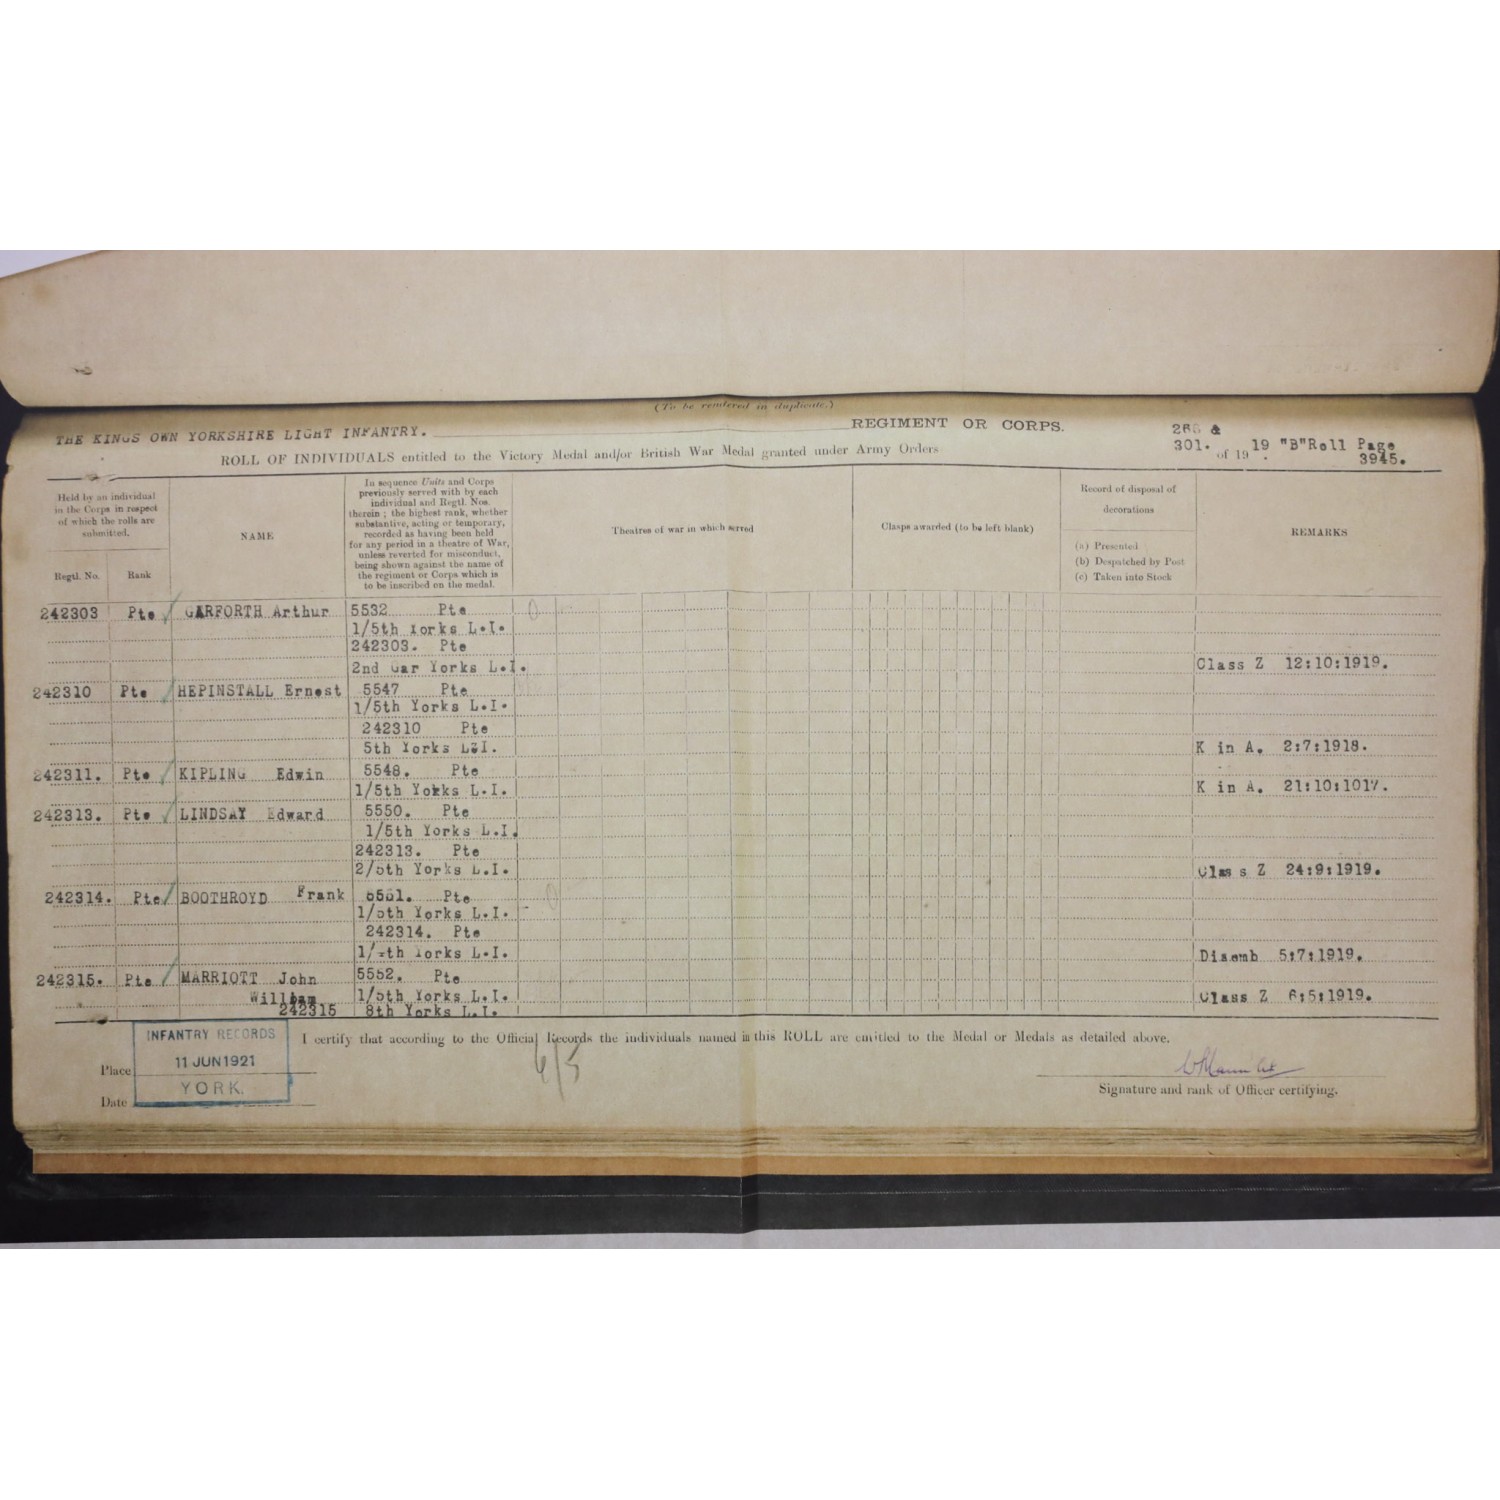 (To be rendered in duplicate.)
THE KINGS OWN YORKSHIRE LIGHT INFANTRY. REGIMENT OR CORPS. 266 &
301. of 19 19 "B"Roll Page
3945.
ROLL OF INDIVIDUALS entitled to the Victory Medal and/or British War Medal granted under Army Orders
Held by an individual in the Corps in respect of which the rolls are submitted.
Regtl. No. Rank
NAME
In sequence Units and Corps
previously served with by each
individual and Regtl. Nos.
therein ; the highest rank, whether
substantive, acting or temporary,
recorded as having been held
for any period in a theatre of War,
unless reverted for misconduct,
being shown against the name of
the regiment or Corps which is
to be inscribed on the medal.
Theatres of war in which served
Clasps awarded (to be left blank)
Record of disposal of
decorations
(a) Presented
(b) Despatched by Post
(c) Taken into Stock
REMARKS
242303 Pte GARFORTH Arthur 5532 Pte
1/5th Yorks L.I.
242303. Pte
2nd Gar Yorks L.I. Class Z 12:10:1919.
242310 Pte HEPINSTALL Ernest 5547 Pte
1/5th Yorks L.I.
242310 Pte
5th Yorks L.I. K in A. 2:7:1918.
242311. Pte KIPLING Edwin 5548. Pte
1/5th Yorks L.I. K in A. 21:10:1017.
242313. Pte LINDSAY Edward 5550. Pte
1/5th Yorks L.I.
242313. Pte
2/5th Yorks L.I. Class Z 24:9:1919.
242314. Pte BOOTHROYD Frank 5551. Pte
1/5th Yorks L.I.
242314. Pte
Yorks L.I. Disemb 5:7:1919.
242315. Pte MARRIOTT John 5552. Pte
William 1/5th Yorks L.I. Class Z 6:5:1919.
242315 8th Yorks L.I.
I certify that according to the Official Records the individuals named in this ROLL are entitled to the Medal or Medals as detailed above.
INFANTRY RECORDS
11 JUN 1921
YORK.
Place
Date
6/5
Signature and rank of Officer certifying.